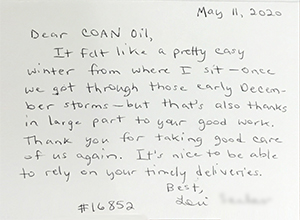 May 11, 2020
Dear COAN Oil,
It felt like a pretty easy
winter from where I sit—once
we got through those early Decem-
ber storms—but that's also thanks
in large part to your good work.
Thank you for taking good care
of us again. It's nice to be able
to rely on your timely deliveries.
Best,
Lori
#16852